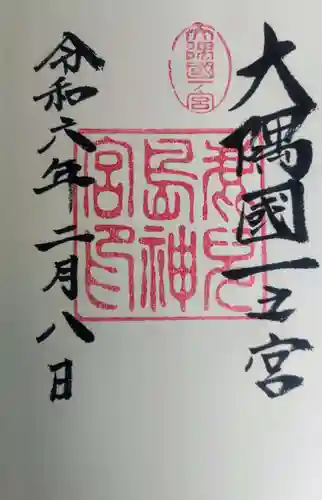 大隅國一之宮
大隅國一ノ宮
鹿児島神宮印
令和六年二月八日